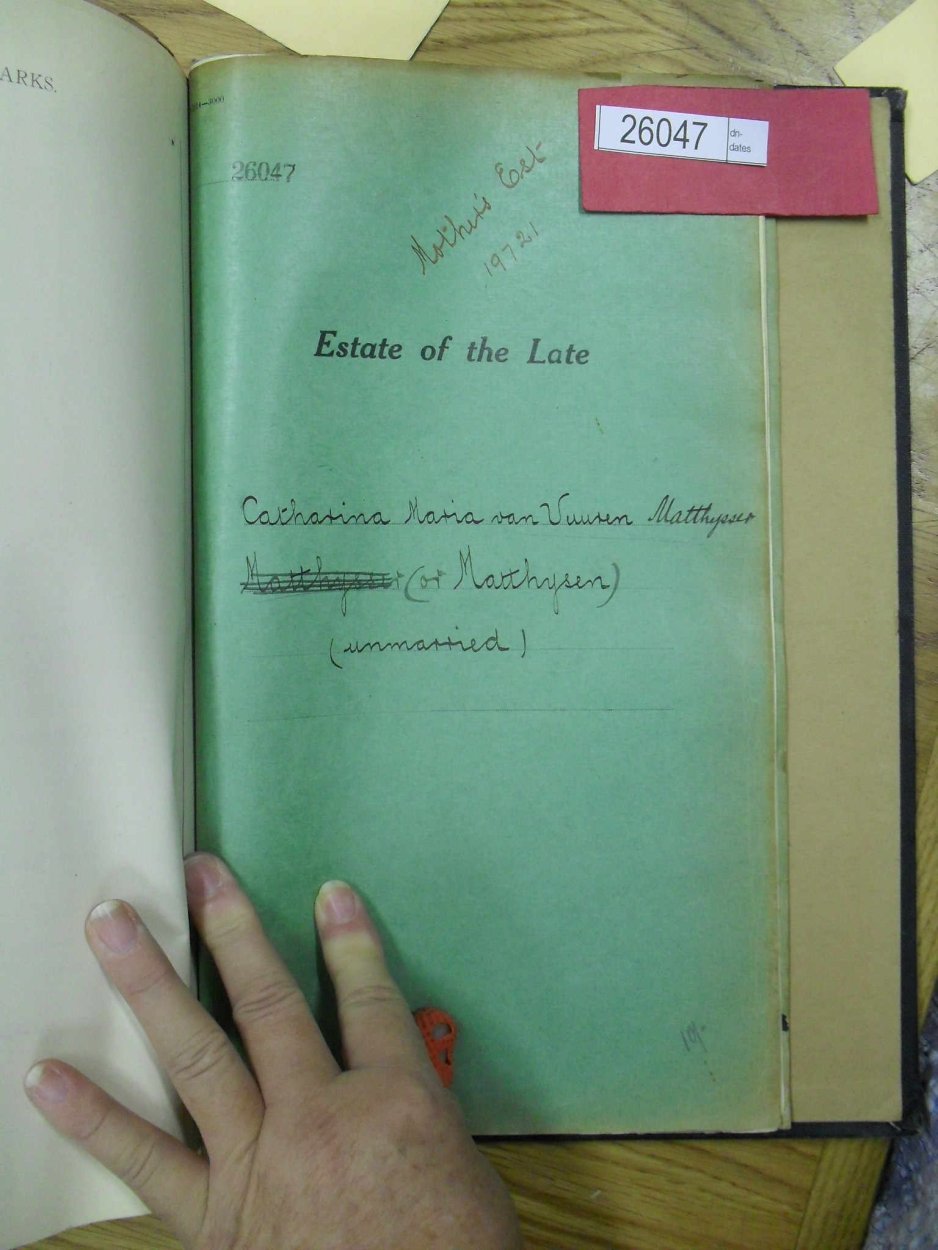 ARKS.
26047
dn-
dates
26047
Mother's Est-
19721
Estate of the Late
Catharina Maria van Vuuren Matthysser
(or Matthysen)
(unmarried)